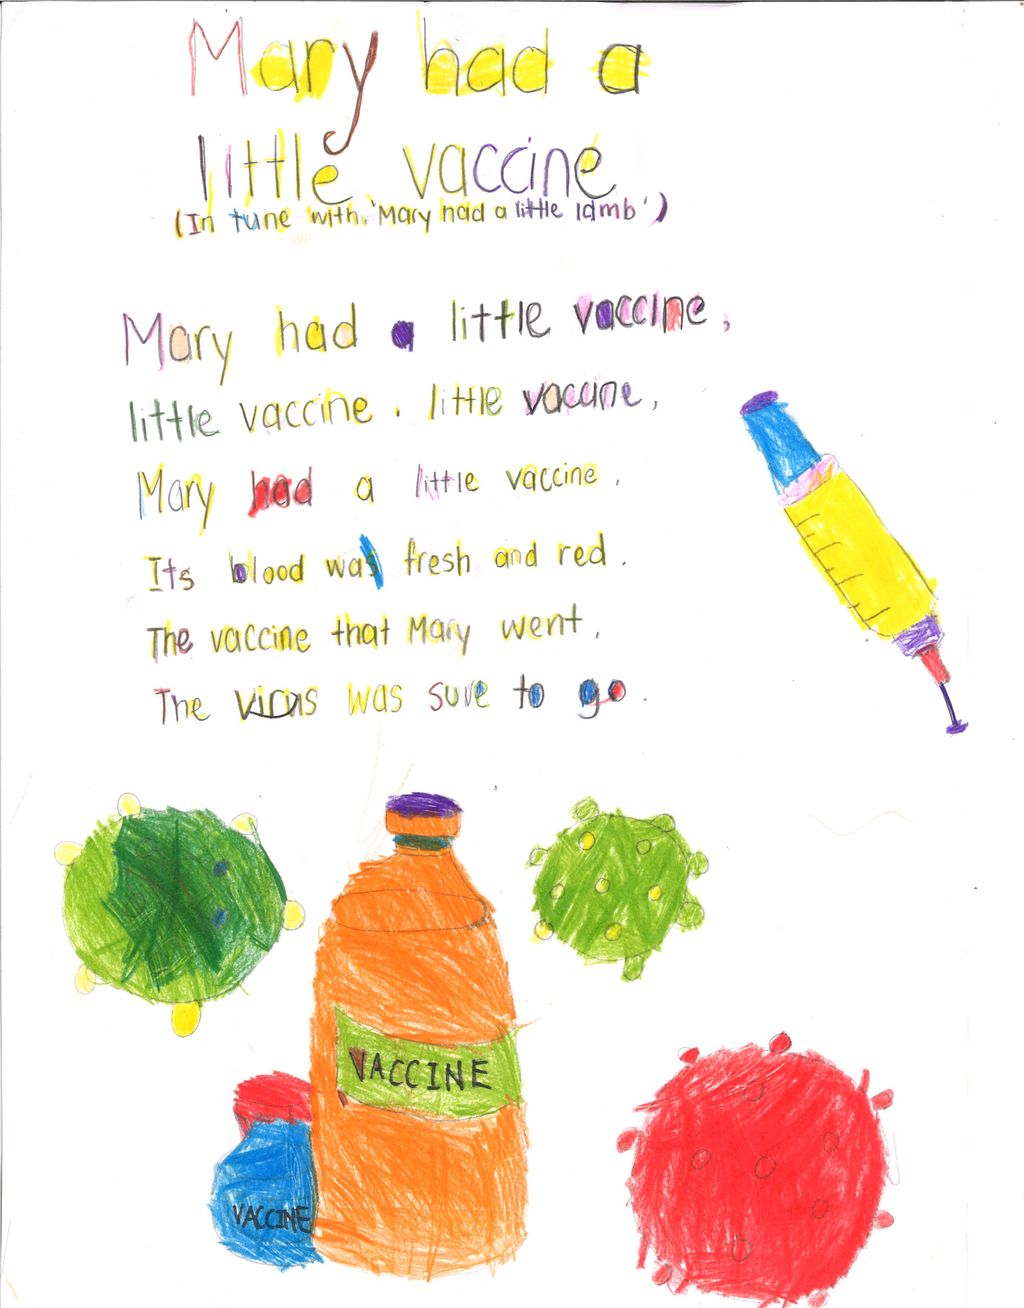 Mary had a
little vaccine
(In tune with 'Mary had a little lamb')
Mary had a little vaccine,
little vaccine, little vaccine,
Mary had a little vaccine,
Its blood was fresh and red.
The vaccine that Mary went,
The virus was sure to go.
VACCINE
VACCINE